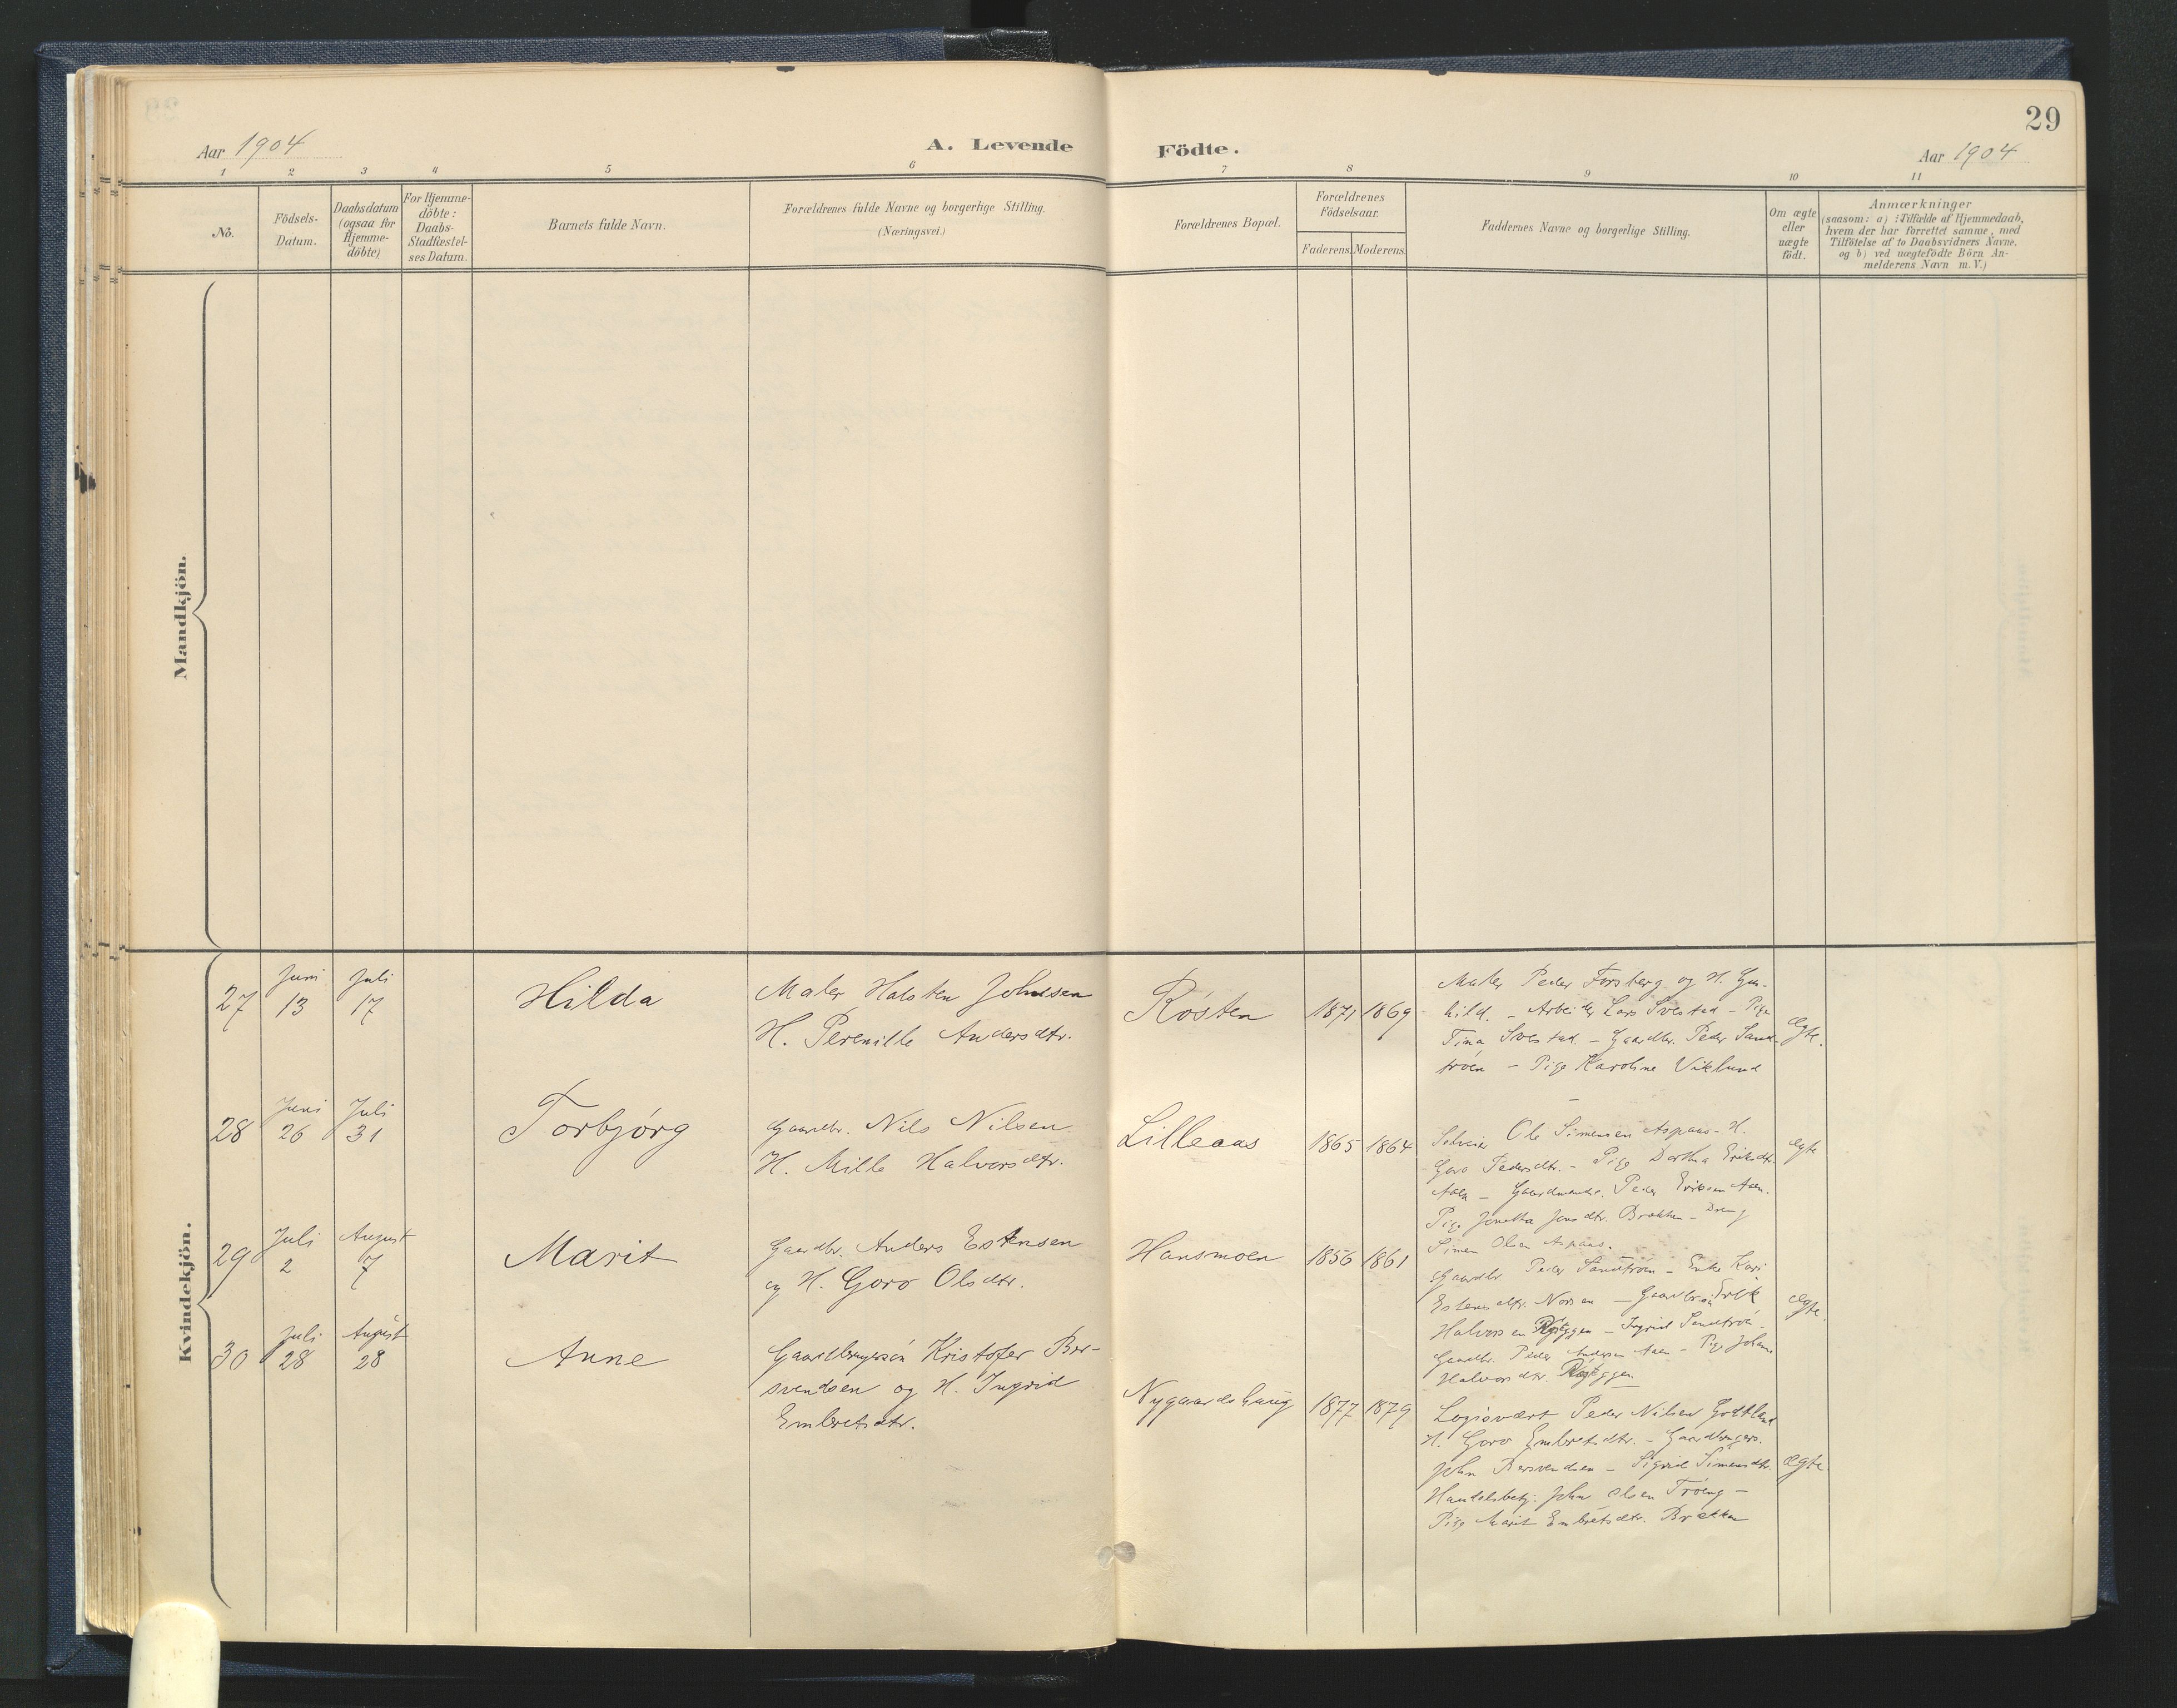 29
Aar 1904
A. Levende Födte.
Aar 1904
1 2 3 4 5 6 7 8 9 10 11
No.
Födsels-
Datum.
Daabsdatum
(ogsaa for
Hjemme-
döbte)
For Hjemme-
döbte:
Daabs-
Stadfæstel-
ses Datum.
Barnets fulde Navn.
Forældrenes fulde Navne og borgerlige Stilling.
(Næringsvei.)
Forældrenes Bopæl.
Forældrenes
Födselsaar.
Faderens. Moderens.
Faddernes Navne og borgerlige Stilling.
Om ægte
eller
uægte
födt.
Anmærkninger
(saasom: a) i Tilfælde af Hjemmedaab,
hvem der har forrettet samme, med
Tilföielse af to Daabsvidners Navne,
og b) ved uægtefödte Börn An-
melderens Navn m.V.)
Mandkjön.
Kvindekjön.
27
Juni
13
Juli
17
Hilda
Maler Halsten Johnsen
H. Pernille Andersdtr.
Røsten
1871 1869
Maler Peder Forsberg og H. Gun-
hild. - Arbeider Lars Svestad - Pige
Tina Svestad - Gaardbr. Peder Sand-
trøen - Pige Karoline Viklund
ægte.
28
Juni
26
Juli
31
Torbjørg
Gaardbr. Nils Nilsen
H. Mille Halvorsdtr.
Lilleaas
1865 1864
Ole Simensen Aspaas - H.
Goro Pedersdtr. - Pige Dorthea Eriksdtr.
Aaen - Gaardmand. Peder Eriksen Aaen.
Pige Jonetta Jonsdtr. Brækken - Dreng
Simen Olsen Aspaas.
ægte
29
Juli
2
August
7
Marit
Gaardbr. Anders Estensen
og H. Goro Olsdtr.
Hansmoen
1856 1861
Gaardbr. Peder Sandtrøen - Enke Kari
Estensdtr. Norsen - Gaardbr. Erik
Halvorsen - Ingrid Sandtrøen
Gaardbr. Peder Andersen Aaen - Pige Johan
Halvorsdtr.
ægte.
30
Juli
28
August
28
Anne
Gaardbrugersøn Kristofer Ber-
svendsen og H. Ingrid
Embretsdtr.
Nygaardshaug
1877 1879
Logisvært Peder Nilsen Godtland
H. Goro Embretsdtr. - Gaardbrugers.
John Bersvendsen - Sigrid Simensdtr.
Handelsbetj. John Olsen Trøeng -
Pige Marit Embretsdtr. Brækken
ægte.